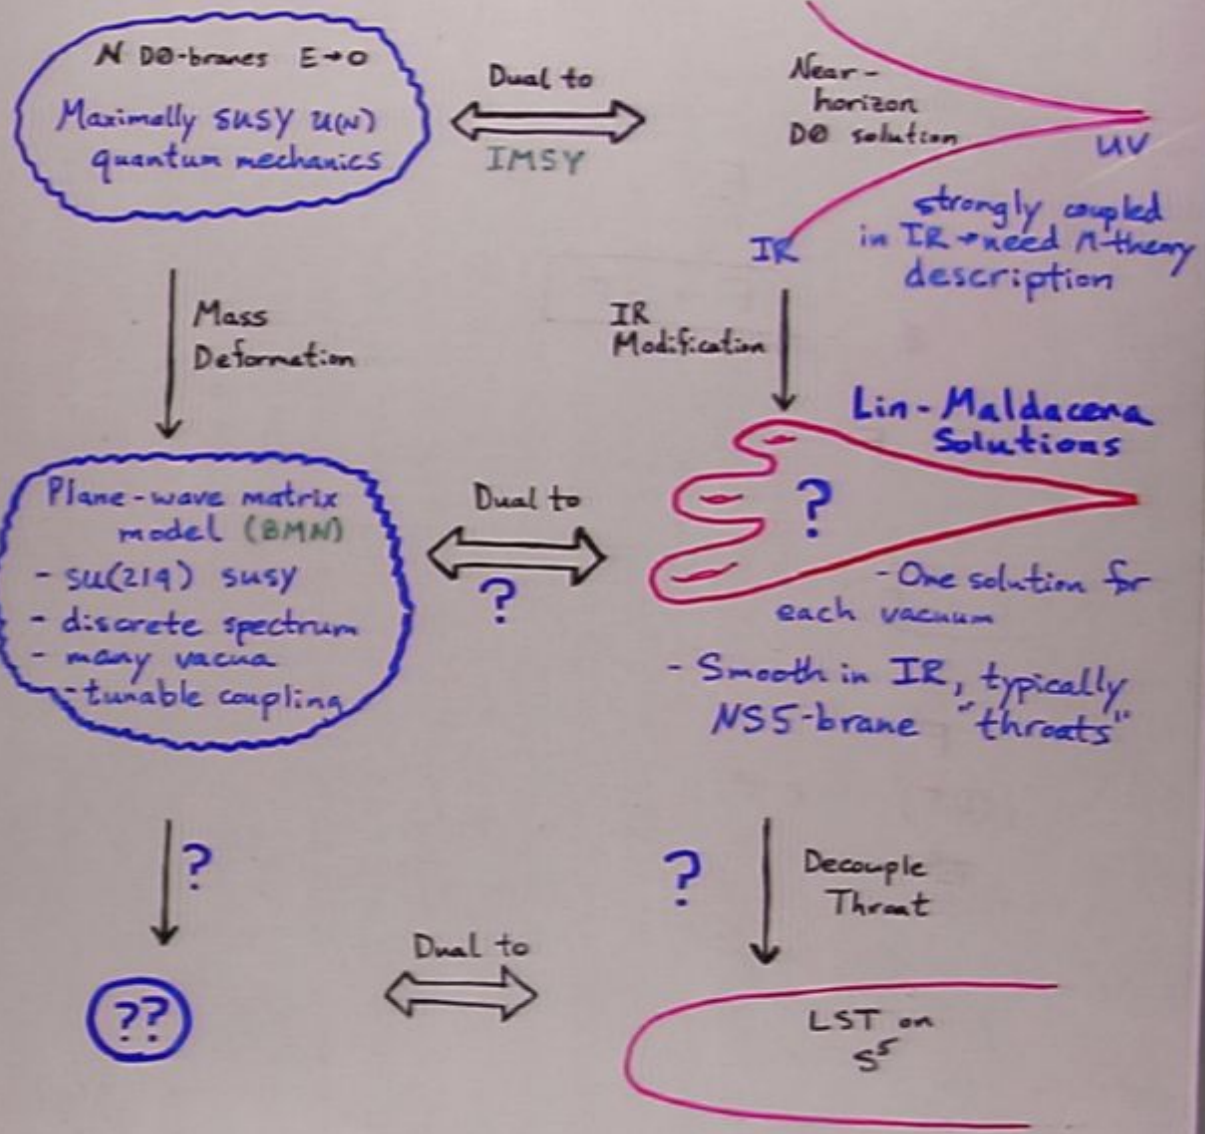 N D0-branes E→0
Maximally susy U(N)
quantum mechanics
Dual to
IMSY
Near-
horizon
D0 solution
UV
IR
strongly coupled
in IR→need M-theory
description
Mass
Deformation
IR
Modification
Lin-Maldacena
Solutions
Plane-wave matrix
model (BMN)
- su(2|4) susy
- discrete spectrum
- many vacua
- tunable coupling
Dual to
?
?
- One solution for
each vacuum
- Smooth in IR, typically
NS5-brane "throats"
?
?
Decouple
Throat
??
Dual to
LST on
S⁵